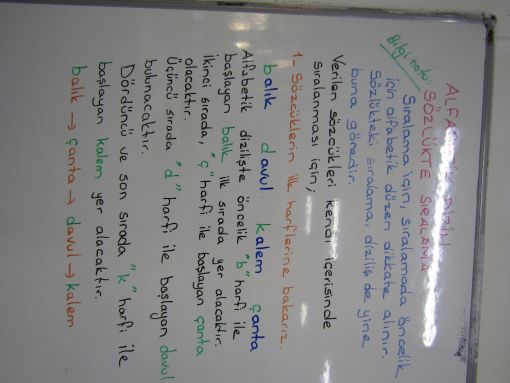 ALFABETİK DİZİLİ
SÖZLÜKTE SIRALAMA
Bilgi notu: Sıralama için, sıralamada öncelik
için alfabetik düzen dikkate alınır.
Sözlükteki sıralama, diziliş de yine
buna göredir.
Verilen sözcükleri kendi içerisinde
sıralanması için;
1- Sözcüklerin ilk harflerine bakarız.
balık davul kalem çanta
Alfabetik dizilişte öncelik "b" harfi ile
başlayan balık ilk sırada yer alacaktır.
İkinci sırada, "ç" harfi ile başlayan çanta
olacaktır.
Üçüncü sırada "d" harfi ile başlayan davul
bulunacaktır.
Dördüncü ve son sırada "k" harfi ile
başlayan kalem yer alacaktır.
balık → çanta → davul → kalem